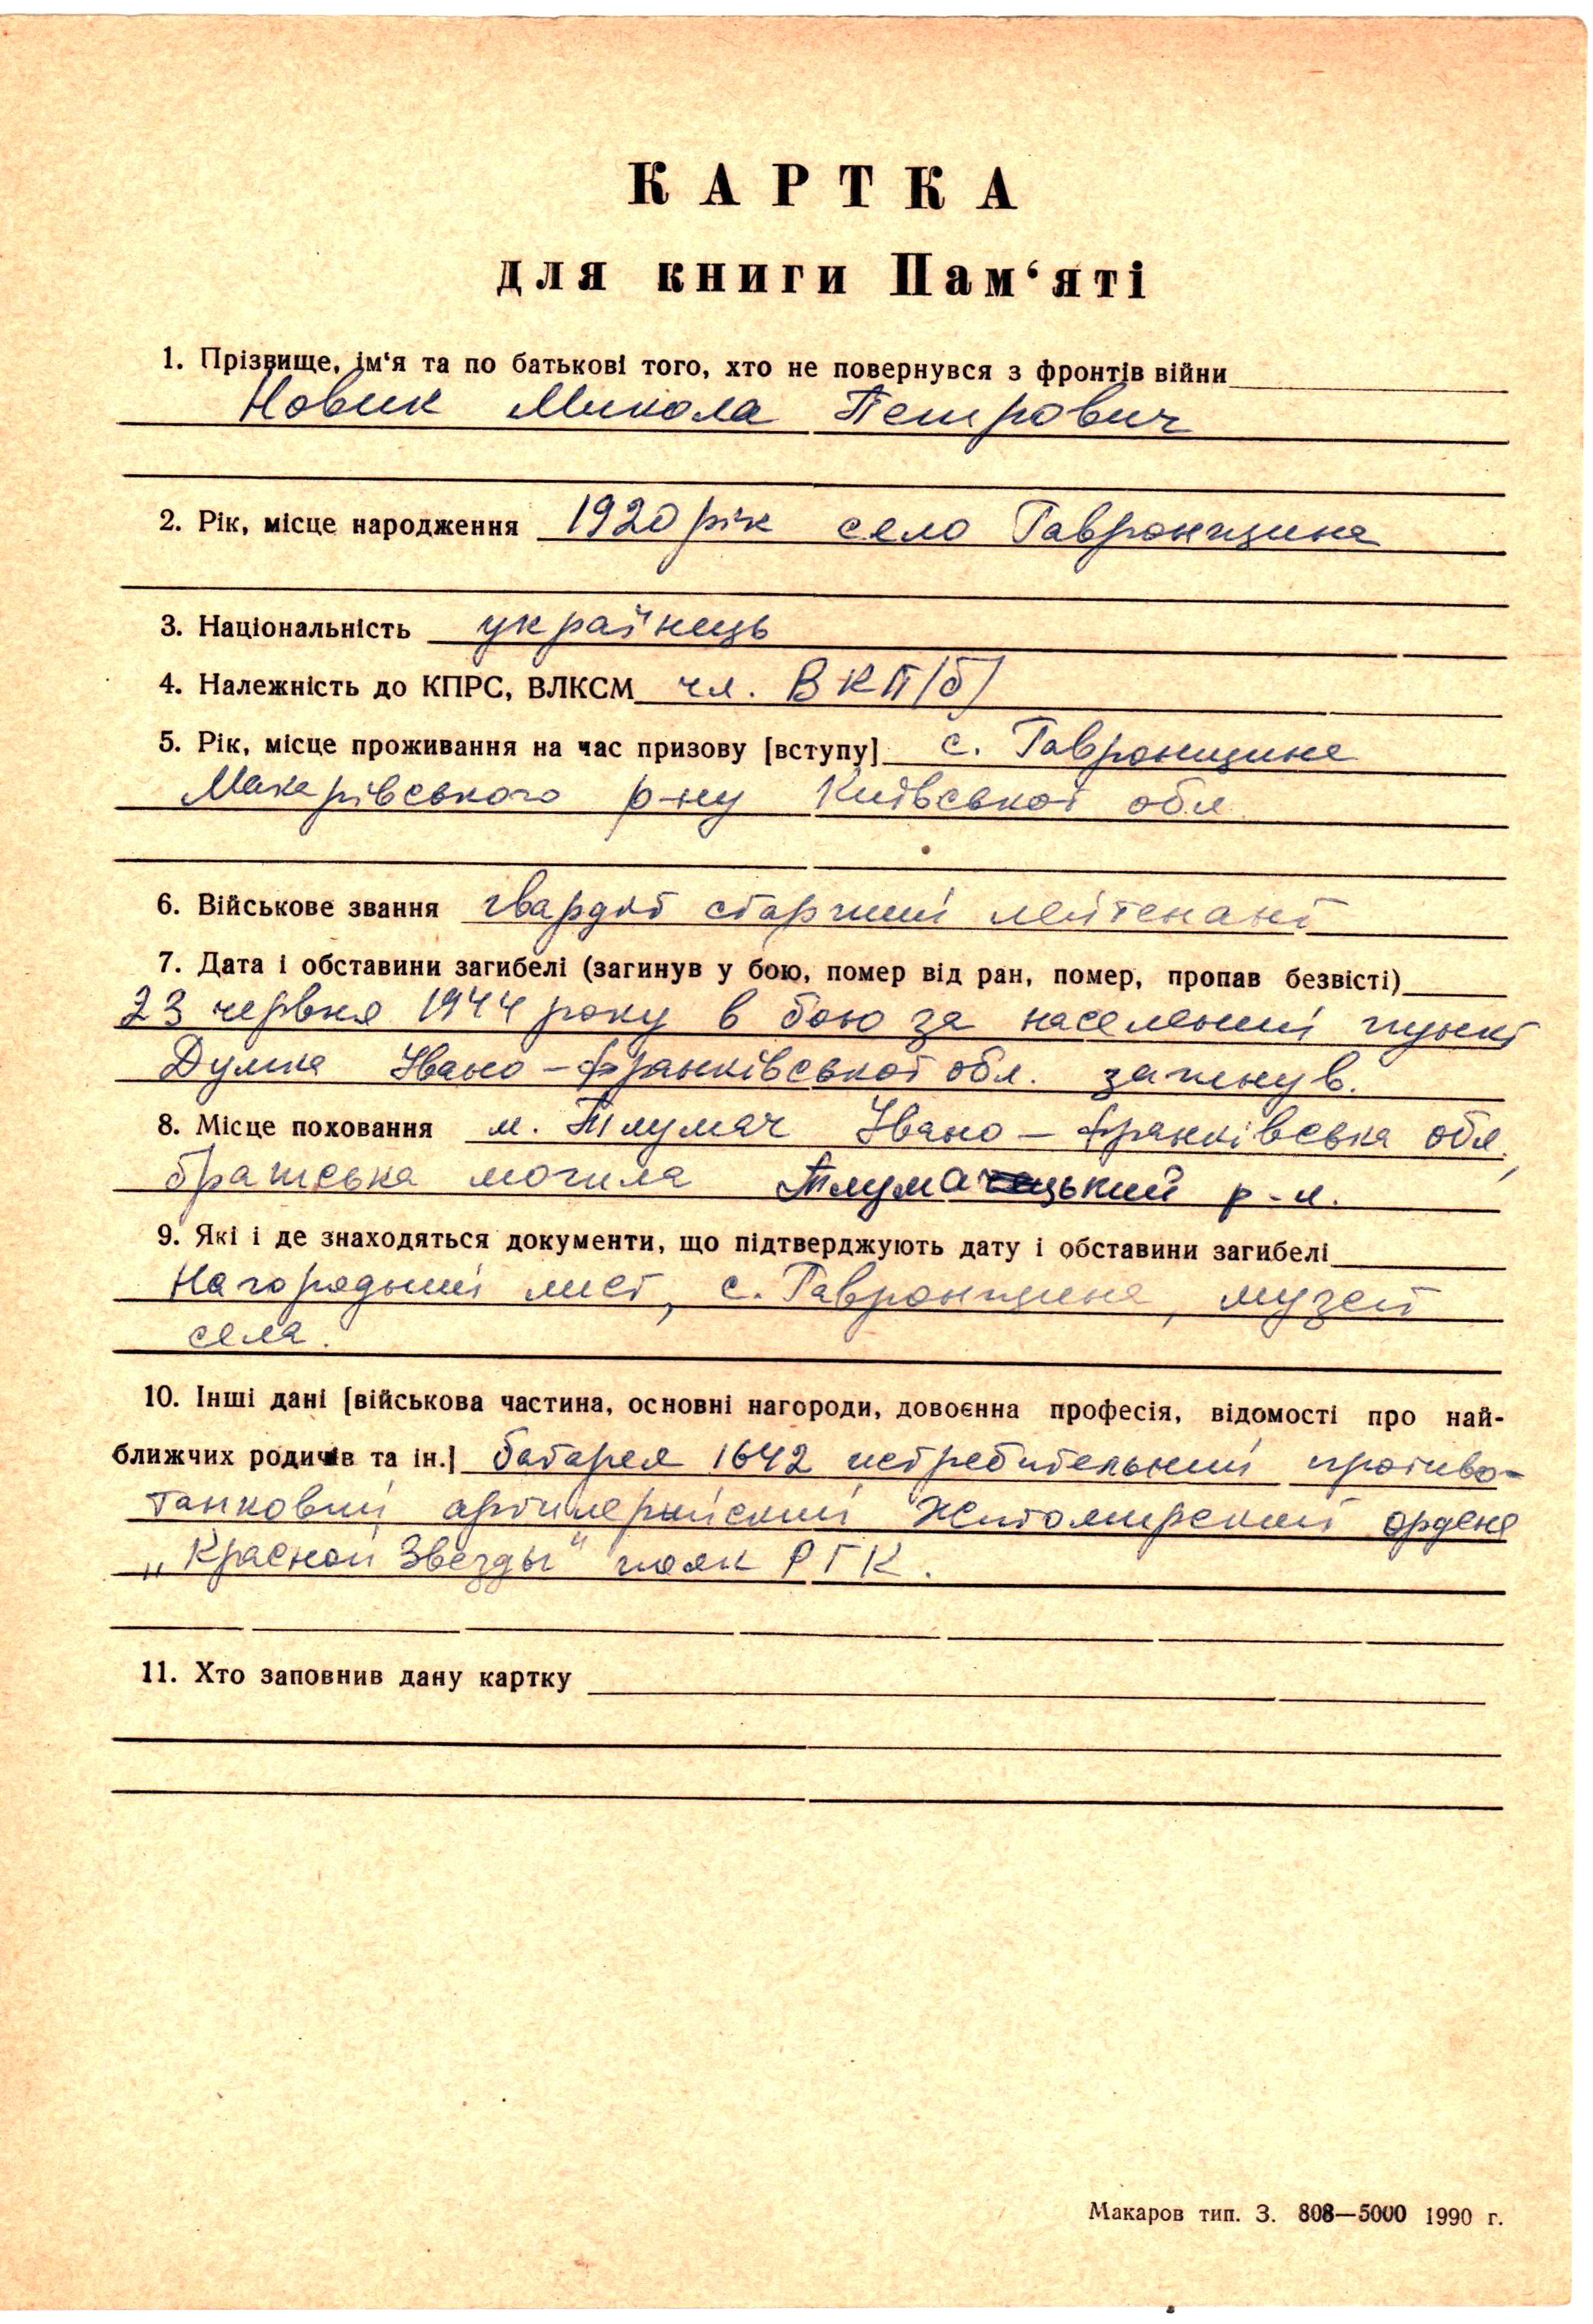 КАРТКА
для книги Пам‘яті
1. Прізвище, ім‘я та по батькові того, хто не повернувся з фронтів війни
Новик Микола Петрович
2. Рік, місце народження 1920 рік село Гавронщина
3. Національність українець
4. Належність до КПРС, ВЛКСМ чл. ВКП/б/
5. Рік, місце проживання на час призову [вступу] с. Гавронщина
Макарівського р-ну Київської обл.
6. Військове звання гвардії старший лейтенант
7. Дата і обставини загибелі (загинув у бою, помер від ран, помер, пропав безвісті)
23 червня 1944 року в бою за населений пункт
Думка Івано-Франківської обл. загинув.
8. Місце поховання м. Тлумач Івано-Франківська обл.,
братська могила Тлумацький р-н.
9. Які і де знаходяться документи, що підтверджують дату і обставини загибелі
Нагородний лист, с. Гавронщина, музей
села.
10. Інші дані [військова частина, основні нагороди, довоєнна професія, відомості про най-
ближчих родичів та ін.] батарея 1642 истребительний противо-
танковий артилерийский Житомирский ордена
„Красной Звезды" полк РГК.
11. Хто заповнив дану картку
Макаров тип. З. 808—5000 1990 г.